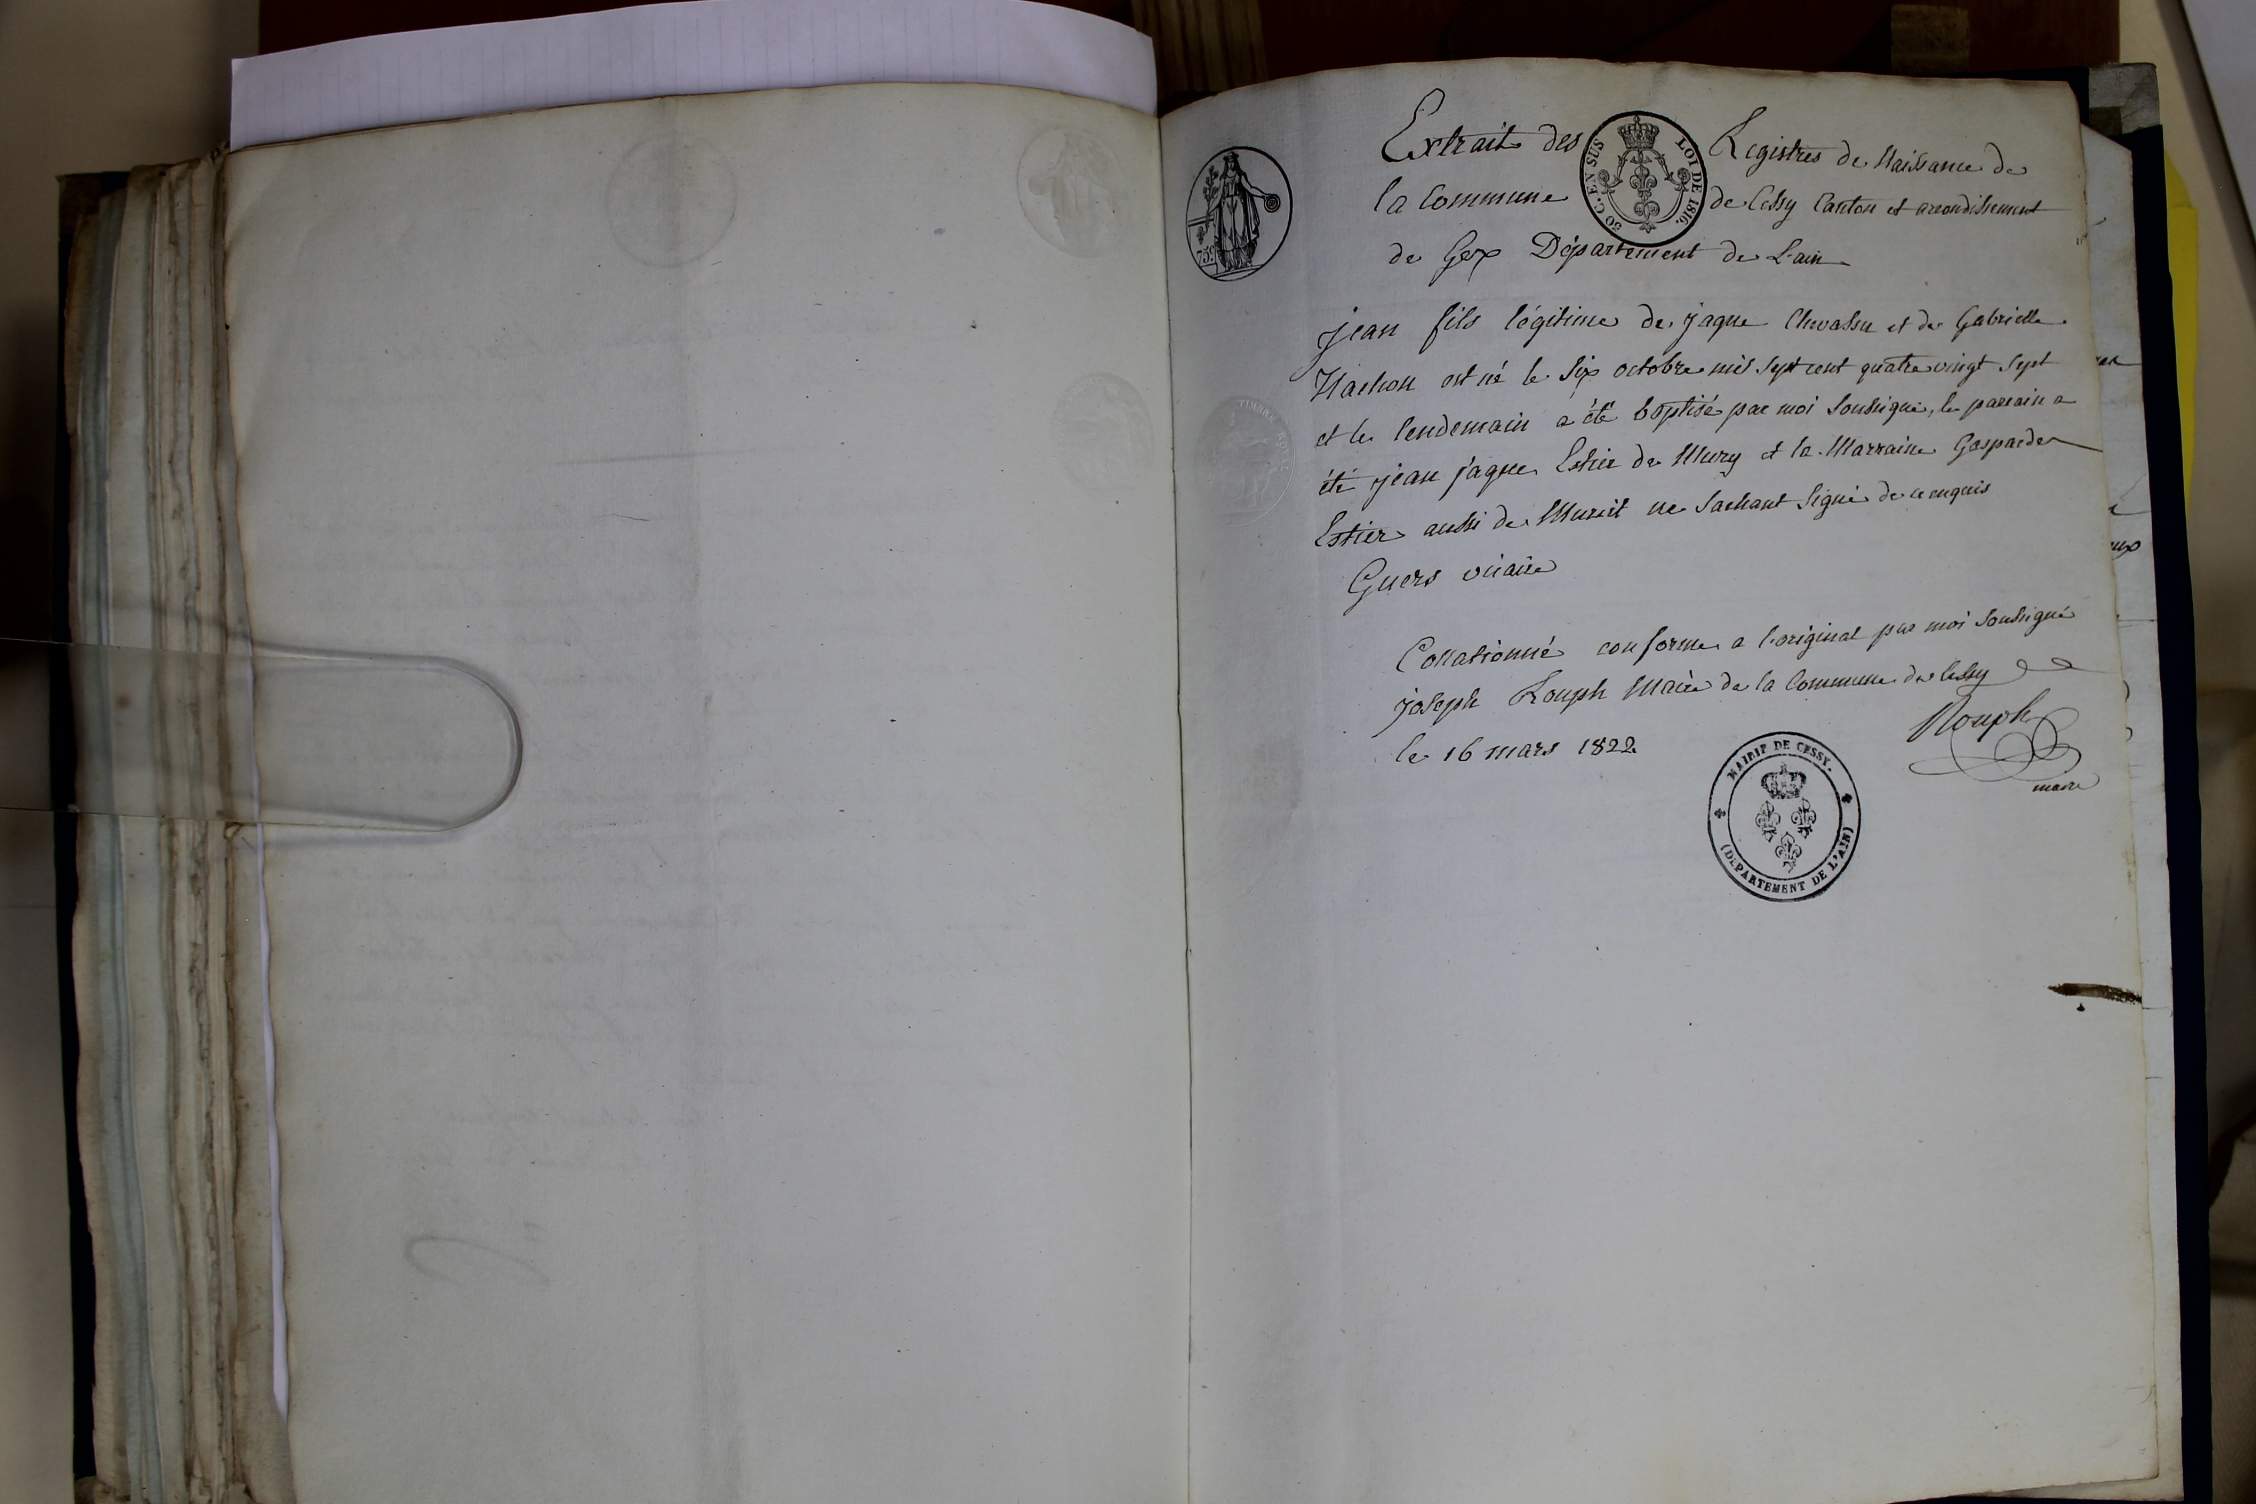 Extrait des Registres de Naissance de
la Commune de Cessy Canton et arrondissement
de Gex Département de L'ain
50 C. EN SUS
LOI DE 1816.
75c
TIMBRE ROYAL
jean fils légitime de jaque Chevassu et de Gabrielle
Nachon est né le six octobre mil sept cent quatre vingt sept
et le lendemain a été baptisé par moi soussigné, le parrain a
été jean jaque Estier de Mury et la Marraine Gasparde
Estier aussi de Murit ne sachant signé de ce enquis
Guers vicaire
Collationné conforme a l'original par moi soussigné
joseph Rouph Maire de la Commune de Cessy
le 16 mars 1822
Rouph
maire
MAIRIE DE CESSY.
(DEPARTEMENT DE L'AIN)